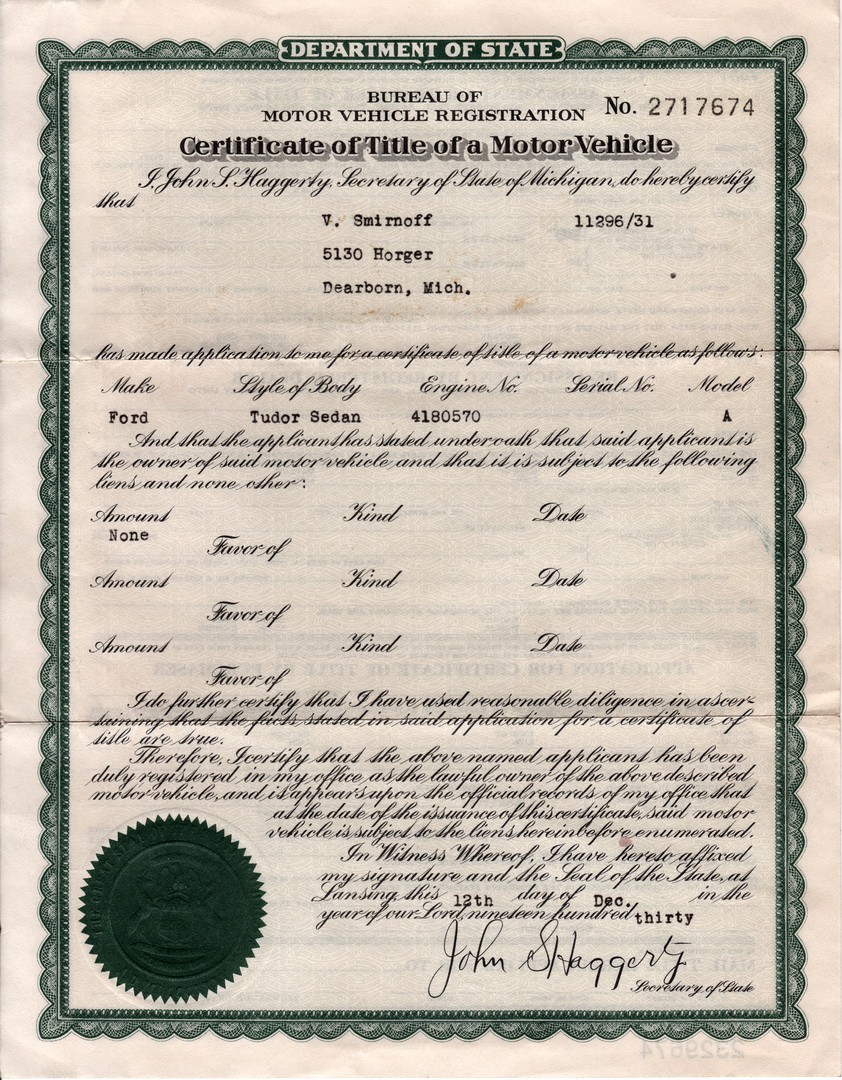 DEPARTMENT OF STATE
BUREAU OF
MOTOR VEHICLE REGISTRATION No. 2717674
Certificate of Title of a Motor Vehicle
I, John S. Haggerty, Secretary of State of Michigan, do hereby certify
that
V. Smirnoff 11296/31
5130 Horger
Dearborn, Mich.
has made application to me for a certificate of title of a motor vehicle as follows:
Make Style of Body Engine No. Serial No. Model
Ford Tudor Sedan 4180570 A
And that the applicant has stated under oath that said applicant is
the owner of said motor vehicle and that it is subject to the following
liens and none other:
Amount Kind Date
None
Favor of
Amount Kind Date
Favor of
Amount Kind Date
Favor of
I do further certify that I have used reasonable diligence in ascer-
taining that the facts stated in said application for a certificate of
title are true.
Therefore, I certify that the above named applicant has been
duly registered in my office as the lawful owner of the above described
motor vehicle, and it appears upon the official records of my office that
at the date of the issuance of this certificate, said motor
vehicle is subject to the liens hereinbefore enumerated.
In Witness Whereof, I have hereto affixed
my signature and the Seal of the State, at
Lansing, this 12th day of Dec. in the
year of our Lord, nineteen hundred thirty
John S Haggerty
Secretary of State
2329674